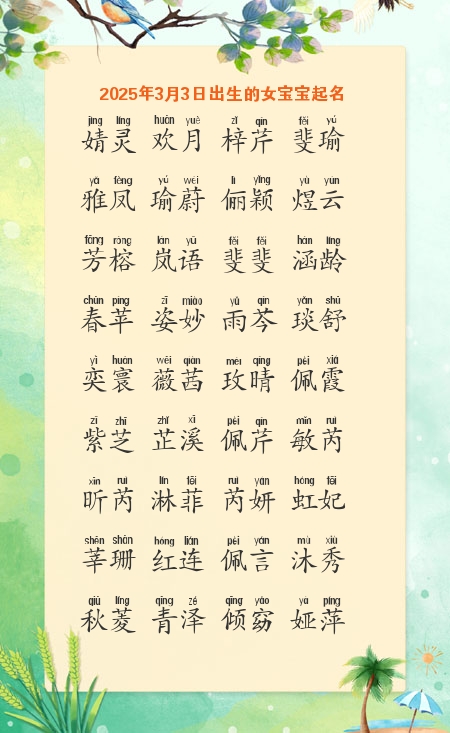 2025年3月3日出生的女宝宝起名
jìng líng huān yuè zǐ qín fěi yú
婧灵 欢月 梓芹 斐瑜
yǎ fèng yú wèi lì yǐng yù yún
雅凤 瑜蔚 俪颖 煜云
fāng róng lán yǔ fěi fěi hán líng
芳榕 岚语 斐斐 涵龄
chūn píng zī miào yǔ qín yǎn shū
春苹 姿妙 雨芩 琰舒
yì huán wēi qiàn méi qíng pèi xiá
奕寰 薇茜 玫晴 佩霞
zǐ zhī zhǐ xī pèi qín mǐn ruì
紫芝 芷溪 佩芹 敏芮
xīn ruì lín fēi ruì yán hóng fēi
昕芮 淋菲 芮妍 虹妃
shēn shān hóng lián pèi yán mù xiù
莘珊 红连 佩言 沐秀
qiū líng qīng zé qīng yǎo yà píng
秋菱 青泽 倾窈 娅萍